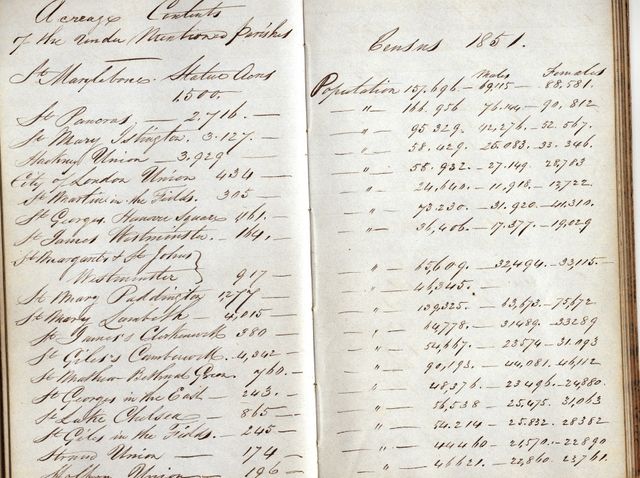 Acreage Contents
of the under Mentioned parishes
St Marylebone. Statue Acres
1.500.
St Pancras. — 2.716. —
St Mary Islington. 3.127. —
Hackney Union — 3.929 —
City of London Union 434 —
St Martin in the Fields. 305 —
St Georges Hanover Square 1161. —
St James Westminster. — 164. —
St Margarets & St Johns
Westminster } 917 —
St Mary Paddington 1277 —
St Mary Lambeth — 4,015 —
St James's Clerkenwell 380 —
St Giles's Camberwell — 4,342 —
St Mathew Bethnal Green 760. —
St Georges in the East — 243. —
St Luke Chelsea — 865 —
St Giles in the Fields. — 245 —
Strand Union — 174 —
Holborn Union — 196 —
Census 1851.
Males Females
Population 157.696. — 69115 — 88,581.
— " — 166.956 76.144 — 90,812
— " — 95.329. 42,276. — 52.567.
— " — 58.429. 25.083. — 33.346.
— " — 55.932. — 27.149. 28,783
— " — 24,640. — 11.918. — 13,722.
— " — 73.230. — 31.920. — 41,310.
— " — 36,406. — 17.377. — 19,029
— " — 65,609. — 32,494. — 33,115. —
— " — 46,345. —
— " — 139,325. 63,673. — 75,672
— " — 64,778. — 31489. — 33289
— " — 54,667. — 23574 — 31.093
— " — 90,193. — 44,081. — 46,112
— " — 48,376. — 23.496. — 24,880.
— " — 56,538 — 25,475. 31,063
— " — 54.214 — 25.832. — 28382
— " — 44460 — 21,570. — 22890
— " — 46621. — 22,860. 23,761.